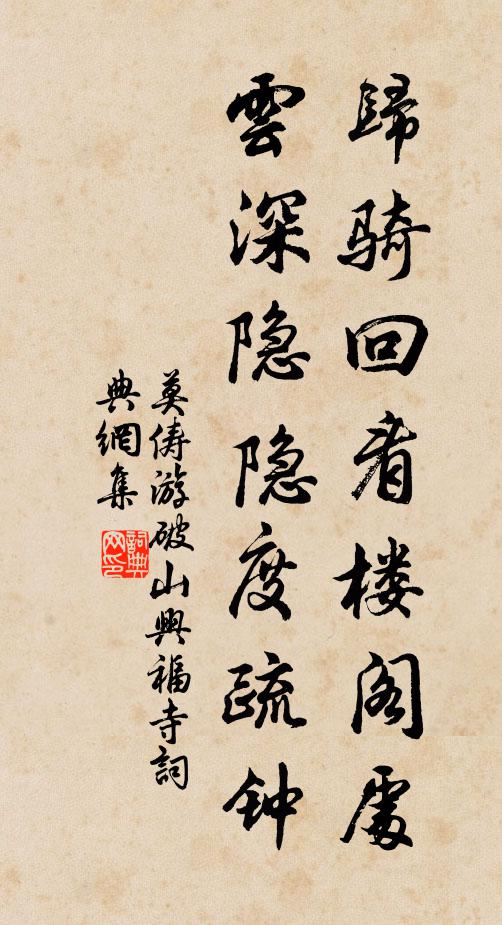 歸骑回看楼阁處
雲深隐隐度疏钟
莫俦游破山興福寺詞
典網集
詞典网印